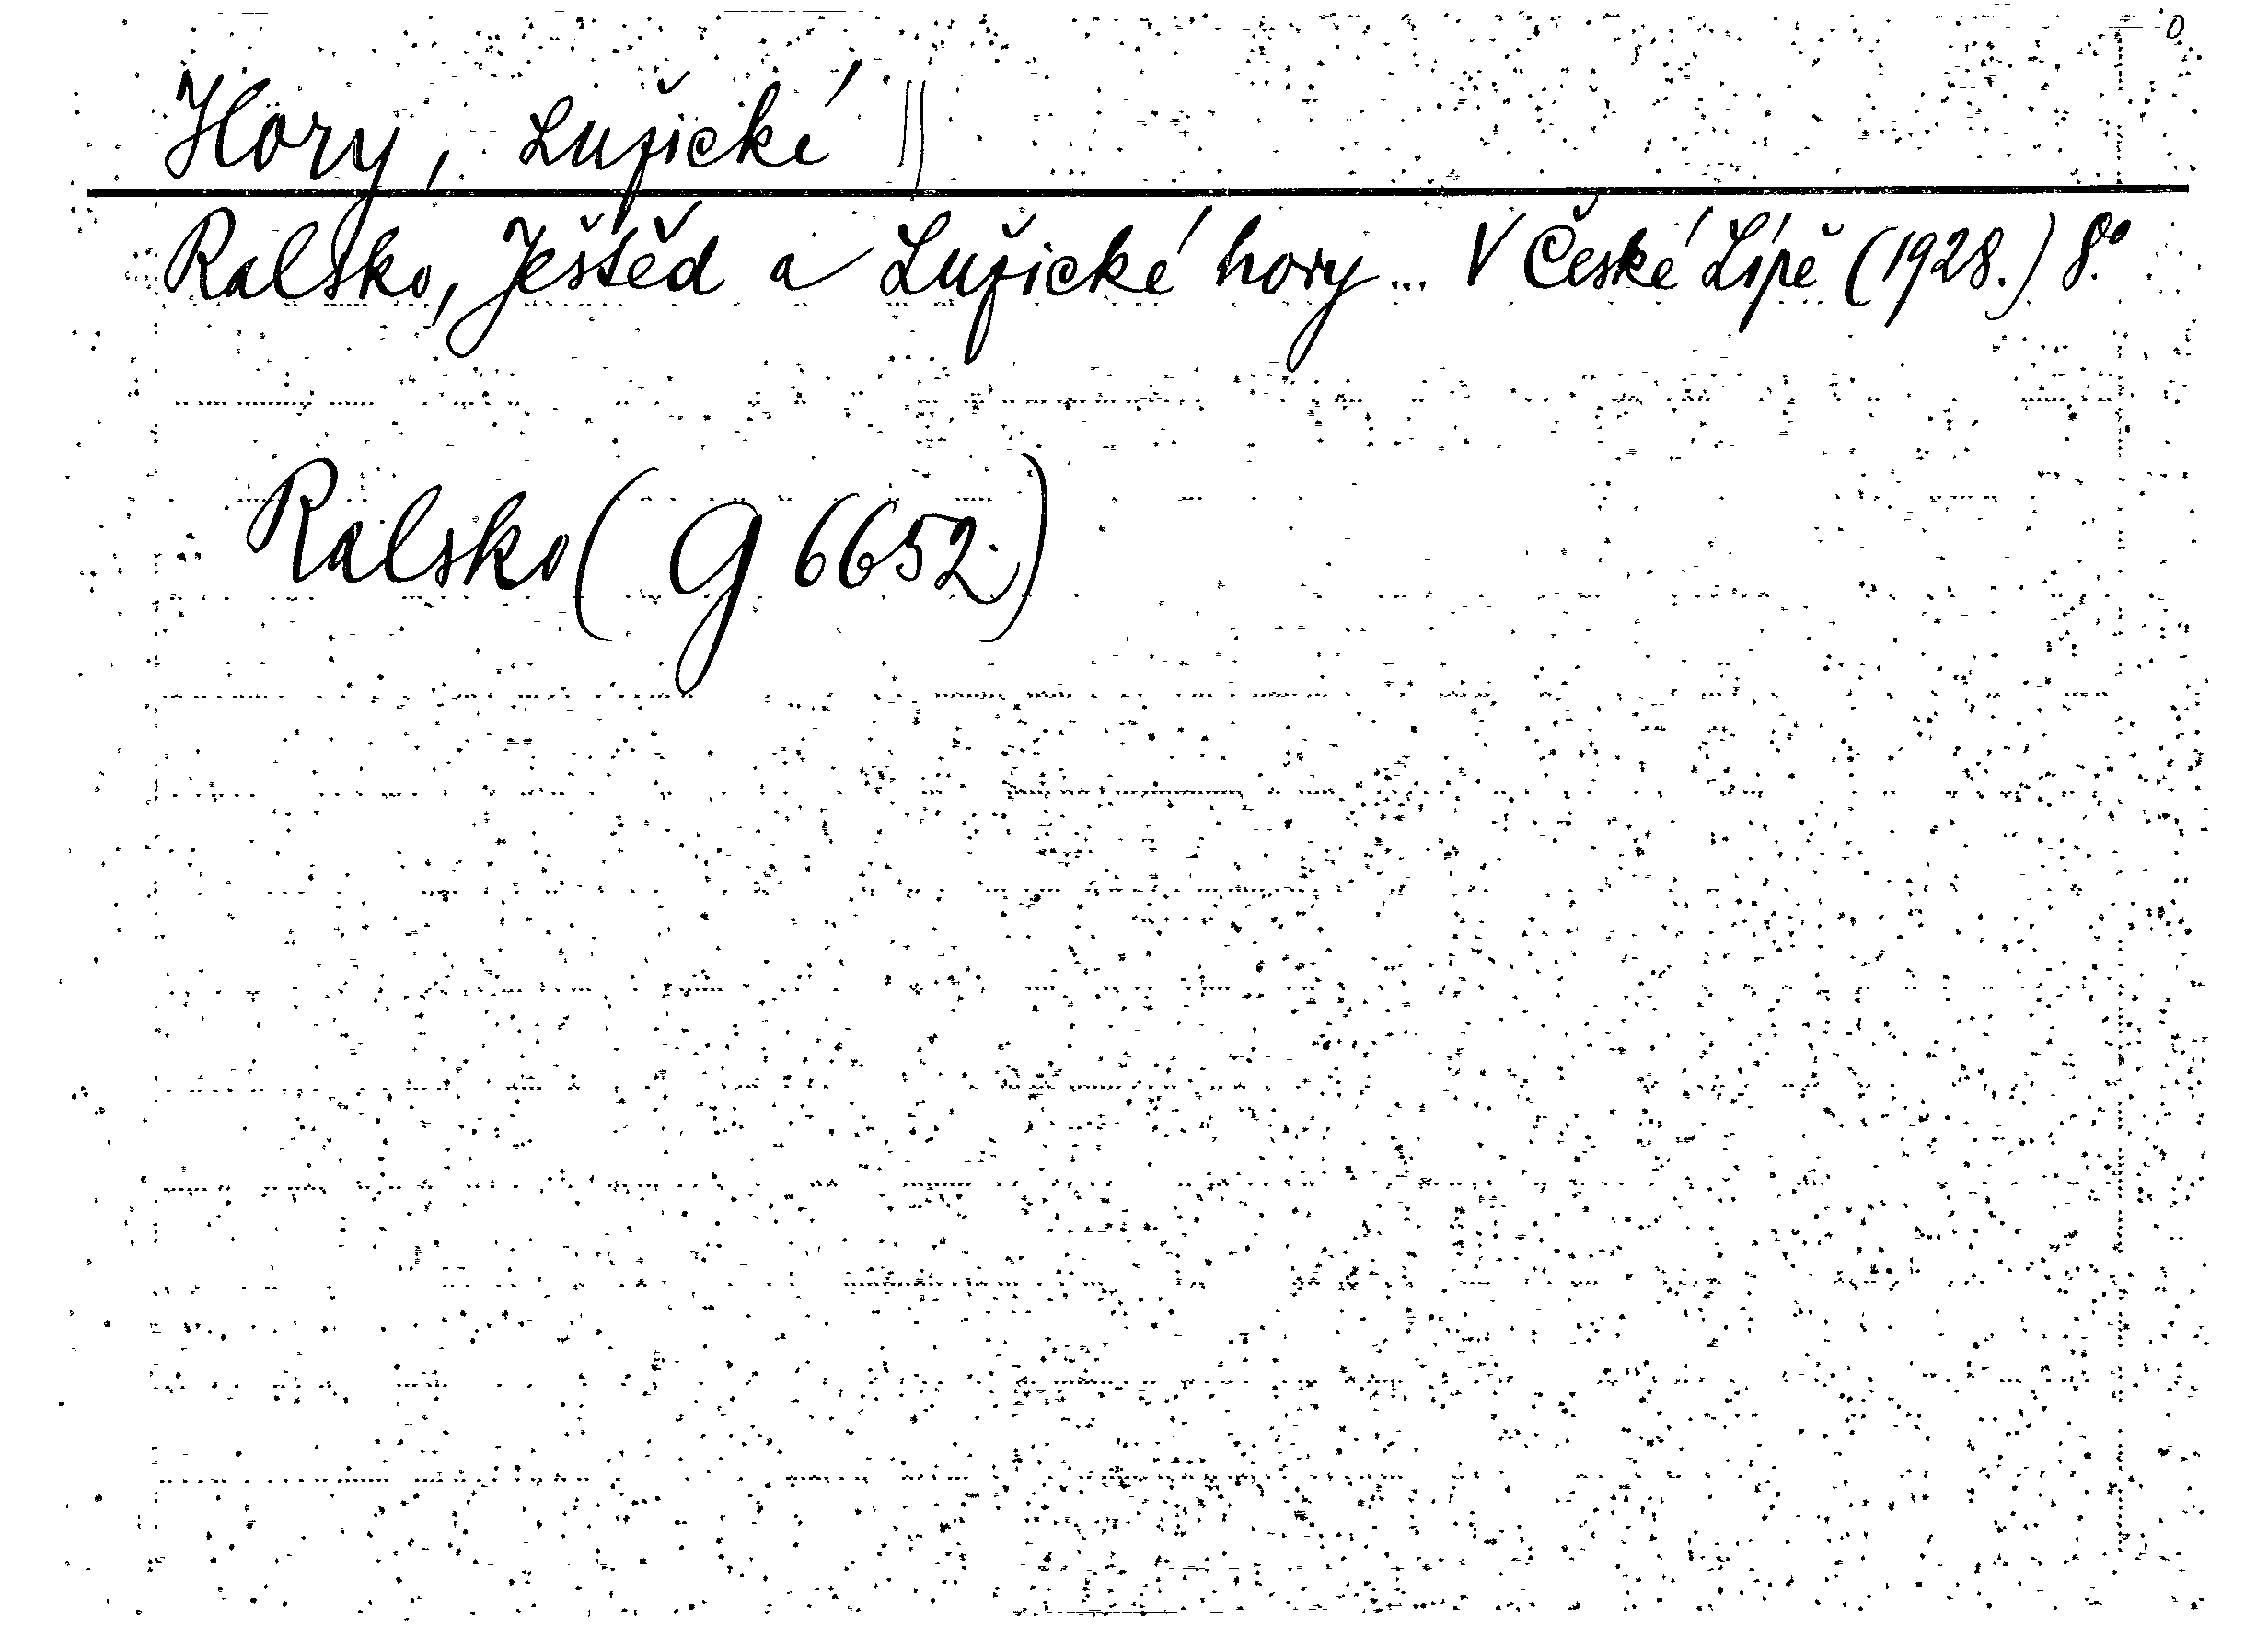 Hory, Lužické ||
Ralsko, Ještěd a Lužické hory... V České Lípě (1928.) 8.°
Ralsko (G 6652.)